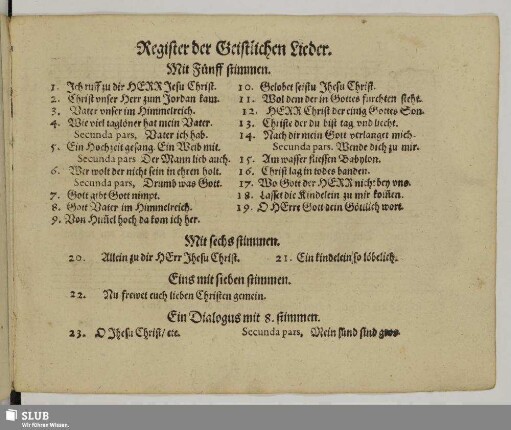 Register der Geistlichen Lieder.
Mit Fünff stimmen.
1. Ich ruff zu dir HERR Jesu Christ.
2. Christ vnser Herr zum Jordan kam.
3. Vater vnser im Himmelreich.
4. Wie viel taglöner hat mein Vater.
Secunda pars, Vater ich hab.
5. Ein Hochzeit gesang. Ein Weib mit.
Secunda pars Der Mann lieb auch.
6. Wer wolt der nicht sein in ehren holt.
Secunda pars, Drumb was Gott.
7. Gott gibt Gott nimpt.
8. Gott Vater im Himmelreich.
9. Von Himel hoch da kom ich her.
10. Gelobet seistu Jhesu Christ.
11. Wol dem der in Gottes furchten steht.
12. HERR Christ der einig Gottes Son.
13. Christe der du bist tag vnd liecht.
14. Nach dir mein Gott verlanget mich.
Secunda pars. Wende dich zu mir.
15. Am wasser flüssen Babylon.
16. Christ lag in todes banden.
17. Wo Gott der HERR nicht bey vns.
18. Lasset die Kindelein zu mir komen.
19. O HErre Gott dein Göttlich wort.
Mit sechs stimmen.
20. Allein zu dir HErr Jhesu Christ. 21. Ein kindelein so löbelich.
Eins mit sieben stimmen.
22. Nu frewet euch lieben Christen gemein.
Ein Dialogus mit 8. stimmen.
23. O Jhesu Christ/ etc. Secunda pars, Mein sünd sind gros.
SLUB
Wir führen Wissen.